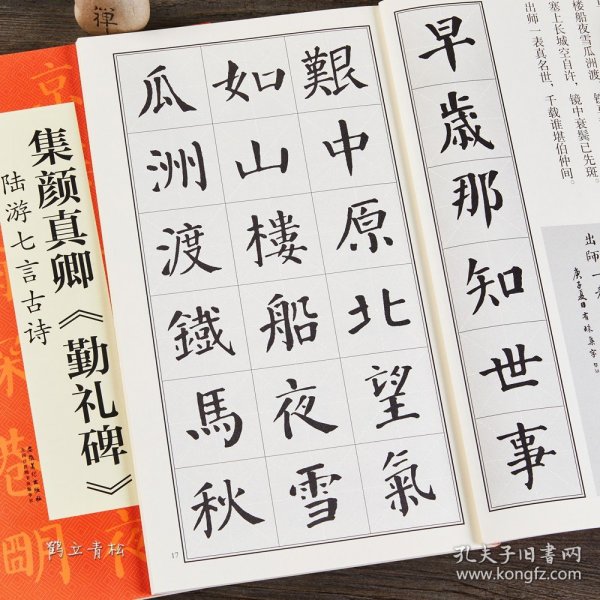 早歲那知世事
艱中原北望氣
如山樓船夜雪
瓜洲渡鐵馬秋
17
楼船夜雪瓜洲渡
塞上长城空自许，镜中衰鬓已先斑。
出师一表真名世，千载谁堪伯仲间。
出師一表
集颜真卿《勤礼碑》
陆游七言古诗
禅
鹤立青松
孔夫子旧书网
www.kongfz.com